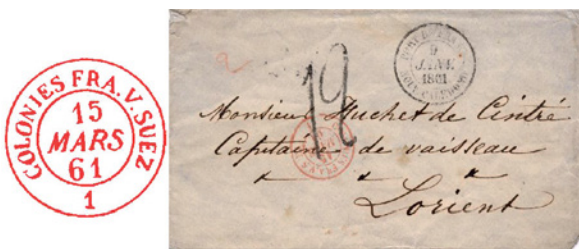 COLONIES FRA. V. SUEZ
15
MARS
61
1
9
JANV.
1861
Monsieur Huchet de Cintré
Capitaine de vaisseau
Lorient